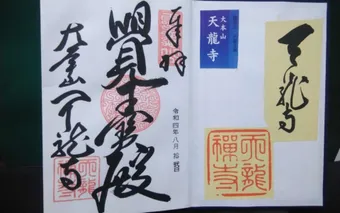 天龍寺
大本山
天龍寺
天龍
禅寺
奉拝
覺王寶殿
大本山天龍寺
令和四年八月